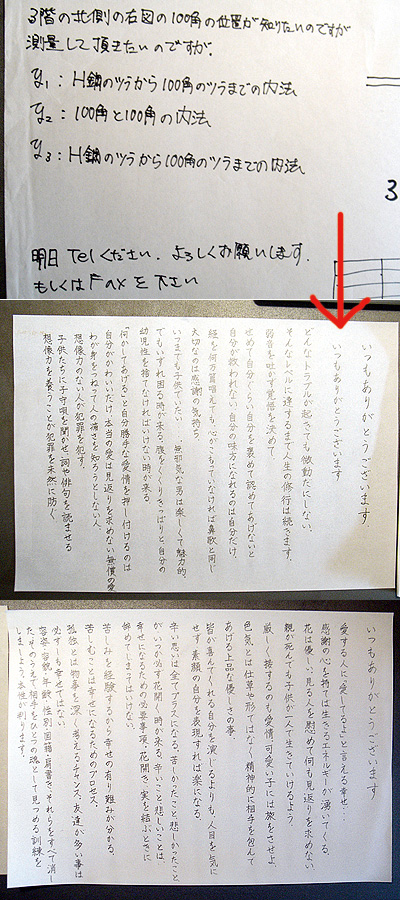 3階の北側の右図の100角の位置が知りたいのですが
測量して頂きたいのですが.
y1：H鋼のツラから100角のツラまでの内法
y2：100角と100角の内法
y3：H鋼のツラから100角のツラまでの内法
3
明日 Telください. よろしくお願いします.
もしくはFaxを下さい
いつもありがとうございます
いつもありがとうございます
どんなトラブルが起きても微動だにしない、
そんなレベルに達するまで人生の修行は続きます。
弱音を吐かず覚悟を決めて、
せめて自分くらい自分を褒めて認めてあげないと
自分が救われない自分の味方になれるのは自分だけ。
経を何万篇唱えても、心がこもっていなければ鼻歌と同じ
大切なのは感謝の気持ち。
いつまでも子供でいたい 無邪気な男は楽しくて魅力的。
でもいずれ困る時が来る。腹をくくりきっぱりと自分の
幼児性を捨てなければいけない時が来る
「何かしてあげる」と自分勝手な愛情を押し付けるのは
自分がかわいいだけ 本当の愛は見返りを求めない無償の愛
わが身をつねって人の痛さを知ろうとしない人、
想像力のない人が犯罪を犯す。
子供たちに子守唄を聞かせ、詞や俳句を読ませる
想像力を養うことが犯罪を未然に防ぐ。
いつもありがとうございます
愛する人に「愛してるよ」と言える幸せ…
感謝の心を持てば生きるエネルギーが湧いてくる。
花は優しい、見る人を慰めて何も見返りを求めない
親が死んでも子供が一人で生きていけるよう、
厳しく接するのも愛情 可愛い子には旅をさせよ。
色気とは仕草や形ではなく、精神的に相手を包んで
あげる上品な優しさの事。
皆が喜んでくれる自分を演じるよりも、人目を気に
せず素顔の自分を表現すれば楽になる。
辛い思いは全てプラスになる。苦しかったこと、悲しかったこと
がいつか必ず花開く時が来る。辛いこと悲しいことは、
幸せになるための必要事項。花開き、実を結ぶときに
辞めてしまってはいけない。
苦しみを経験するから幸せの有り難みが分かる。
苦しむことは幸せになるためのプロセス。
孤独とは物事を深く考えるチャンス、友達が多い事は
必ずしも幸せではない
容姿 容貌 年齢 性別 国籍 肩書き、それらをすべて消し
たそのうえで相手をひとつの魂として見つめる訓練を
しましょう。本性が判ります。